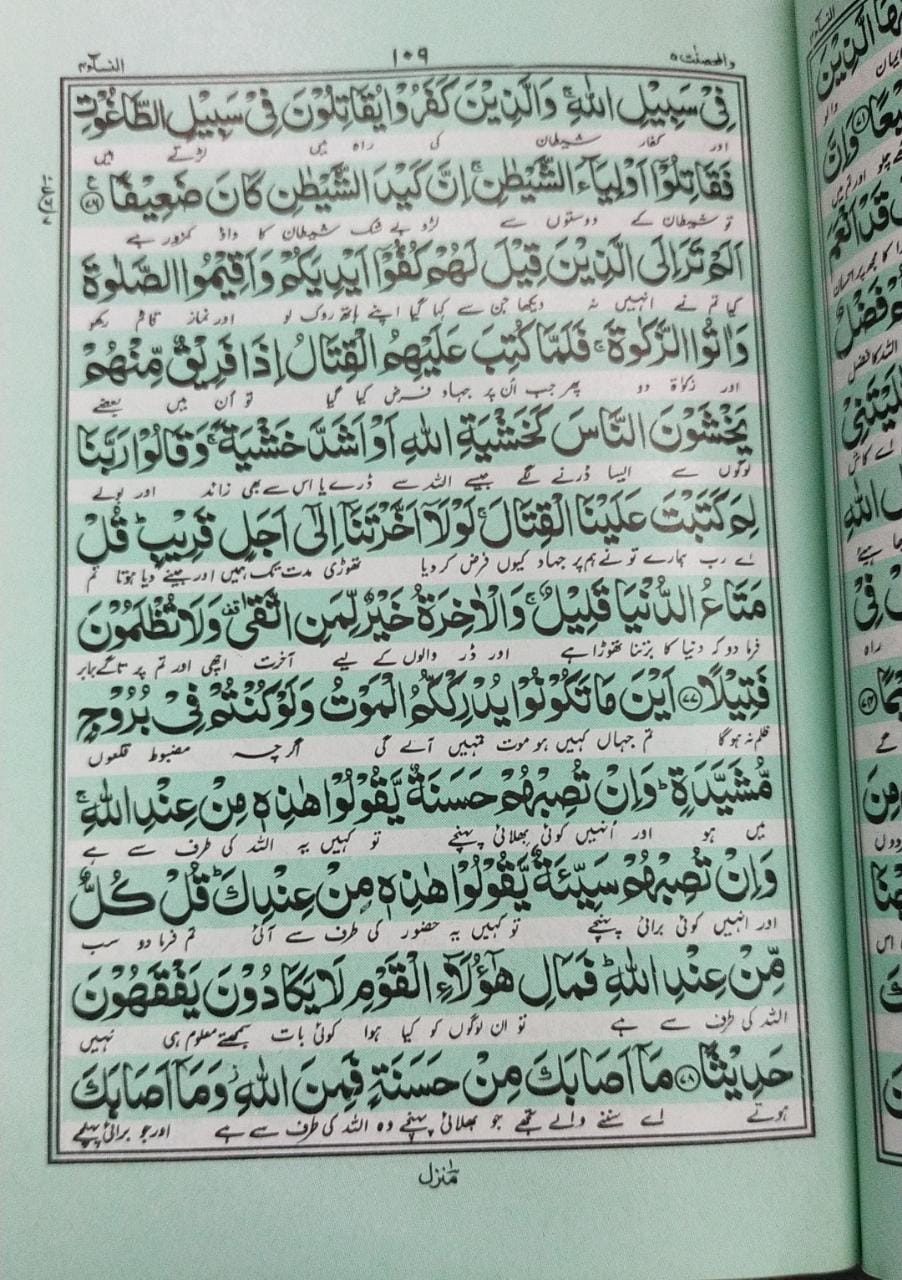 النسآء ۴
۱۰۹
والمحصنٰت ۵
فِیْ سَبِیْلِ اللّٰهِ ۚ وَالَّذِیْنَ كَفَرُوْا یُقَاتِلُوْنَ فِیْ سَبِیْلِ الطَّاغُوْتِ
اور کفار شیطان کی راہ میں لڑتے ہیں
فَقَاتِلُوْۤا اَوْلِیَآءَ الشَّیْطٰنِ ۚ اِنَّ كَیْدَ الشَّیْطٰنِ كَانَ ضَعِیْفًا ۷۶
تو شیطان کے دوستوں سے لڑو بے شک شیطان کا داؤ کمزور ہے
اَلَمْ تَرَ اِلَی الَّذِیْنَ قِیْلَ لَهُمْ كُفُّوْۤا اَیْدِیَكُمْ وَاَقِیْمُوا الصَّلٰوةَ
کیا تم نے انہیں نہ دیکھا جن سے کہا گیا اپنے ہاتھ روک لو اور نماز قائم رکھو
وَاٰتُوا الزَّكٰوةَ ۚ فَلَمَّا كُتِبَ عَلَیْهِمُ الْقِتَالُ اِذَا فَرِیْقٌ مِّنْهُمْ
اور زکوٰۃ دو پھر جب اُن پر جہاد فرض کیا گیا تو اُن میں بعضے
یَخْشَوْنَ النَّاسَ كَخَشْیَةِ اللّٰهِ اَوْ اَشَدَّ خَشْیَةً ۚ وَقَالُوْا رَبَّنَا
لوگوں سے ایسا ڈرنے لگے جیسے اللہ سے ڈرے یا اس سے بھی زائد اور بولے
لِمَ كَتَبْتَ عَلَیْنَا الْقِتَالَ ۚ لَوْلَاۤ اَخَّرْتَنَاۤ اِلٰۤی اَجَلٍ قَرِیْبٍ ؕ قُلْ
اے رب ہمارے تو نے ہم پر جہاد کیوں فرض کر دیا تھوڑی مدت تک ہمیں اور جینے دیا ہوتا تم
مَتَاعُ الدُّنْیَا قَلِیْلٌ ۚ وَالْاٰخِرَةُ خَیْرٌ لِّمَنِ اتَّقٰی ۫ وَلَا تُظْلَمُوْنَ
فرما دو کہ دنیا کا برتنا تھوڑا ہے اور ڈر والوں کے لیے آخرت اچھی اور تم پر تاگے برابر
فَتِیْلًا ۷۷ اَیْنَ مَا تَكُوْنُوْا یُدْرِكْكُّمُ الْمَوْتُ وَلَوْ كُنْتُمْ فِیْ بُرُوْجٍ
ظلم نہ ہو گا تم جہاں کہیں ہو موت تمہیں آلے گی اگرچہ مضبوط قلعوں
مُّشَیَّدَةٍ ؕ وَاِنْ تُصِبْهُمْ حَسَنَةٌ یَّقُوْلُوْا هٰذِهٖ مِنْ عِنْدِ اللّٰهِ ۚ
میں ہو اور اُنہیں کوئی بھلائی پہنچے تو کہیں یہ اللہ کی طرف سے ہے
وَاِنْ تُصِبْهُمْ سَیِّئَةٌ یَّقُوْلُوْا هٰذِهٖ مِنْ عِنْدِكَ ؕ قُلْ كُلٌّ
اور انہیں کوئی برائی پہنچے تو کہیں یہ حضور کی طرف سے آئی تم فرما دو سب
مِّنْ عِنْدِ اللّٰهِ ؕ فَمَالِ هٰۤؤُلَآءِ الْقَوْمِ لَا یَكَادُوْنَ یَفْقَهُوْنَ
اللہ کی طرف سے ہے تو ان لوگوں کو کیا ہوا کوئی بات سمجھتے معلوم ہی نہیں
حَدِیْثًا ۷۸ مَاۤ اَصَابَكَ مِنْ حَسَنَةٍ فَمِنَ اللّٰهِ ۫ وَمَاۤ اَصَابَكَ
ہوتے اے سننے والے تجھے جو بھلائی پہنچے وہ اللہ کی طرف سے ہے اور جو برائی پہنچے
منزل